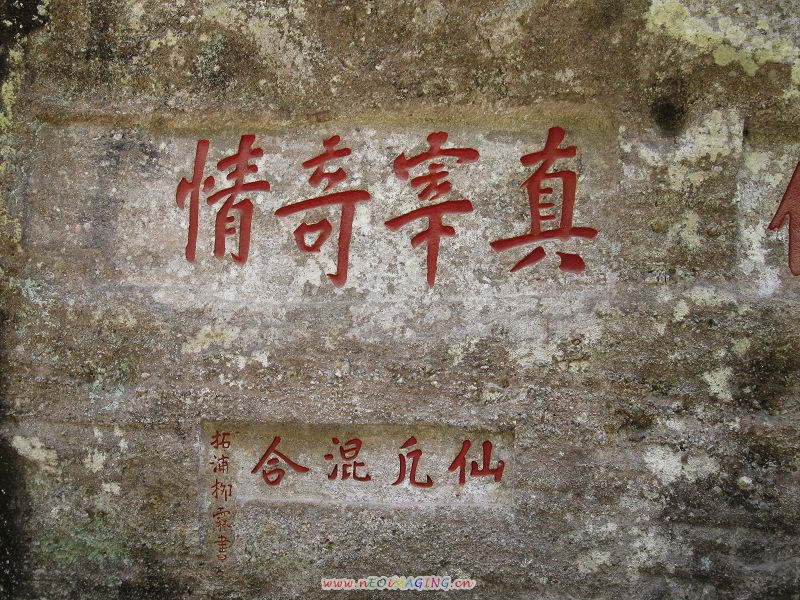 真宰奇情
仙凡混合
柘浦柳霖書
www.nEOiMAGING.cn